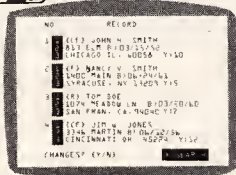 NO RECORD
1 (CF) JOHN H SMITH
833 ELM B:03/15/52
CHICAGO IL. 60658 Y:10
2 NANCY V SMITH
MAIN B:06/24/63
SYRACUSE, NY Y:5
3 (R) TOM DOE
1074 MEADOW LN B:03/30/60
SAN FRAN. CA. Y:7
4 (CP) JIM JONES
3346 MARTIN B:06/
CINCINNATI OH 45274
CHANGES? (Y/N)